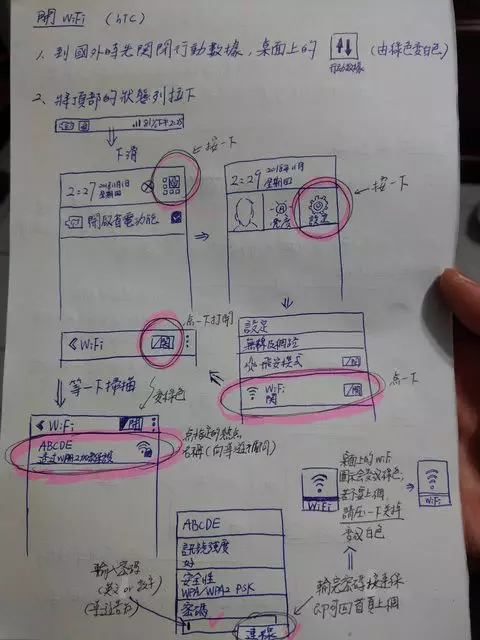 開 WiFi (htc)
1. 到國外時先關閉行動數據,桌面上的
(由綠色變白色)
行動數據
2. 將頂部的狀態列拉下
下滑
按一下
2:27 2018年11月1日
星期四
開啟省電功能
2:29 2018年11月
星期四
亮度
設定
按一下
WiFi
点一下打開
設定
無線與網路
飛安模式
WiFi
開
点一下
等一下掃描
變綠色
WiFi
ABCDE
透過WPA2
点指定的熱点
名稱(向導遊詢問)
ABCDE
訊號強度
好
安全性
WPA/WPA2 PSK
密碼
連線
輸入密碼
桌面上的WiFi
圖示會變成綠色,
若不要上網,
請在按一下
變成白色
WiFi
WiFi
輸完密碼按連線
即可回首頁上網